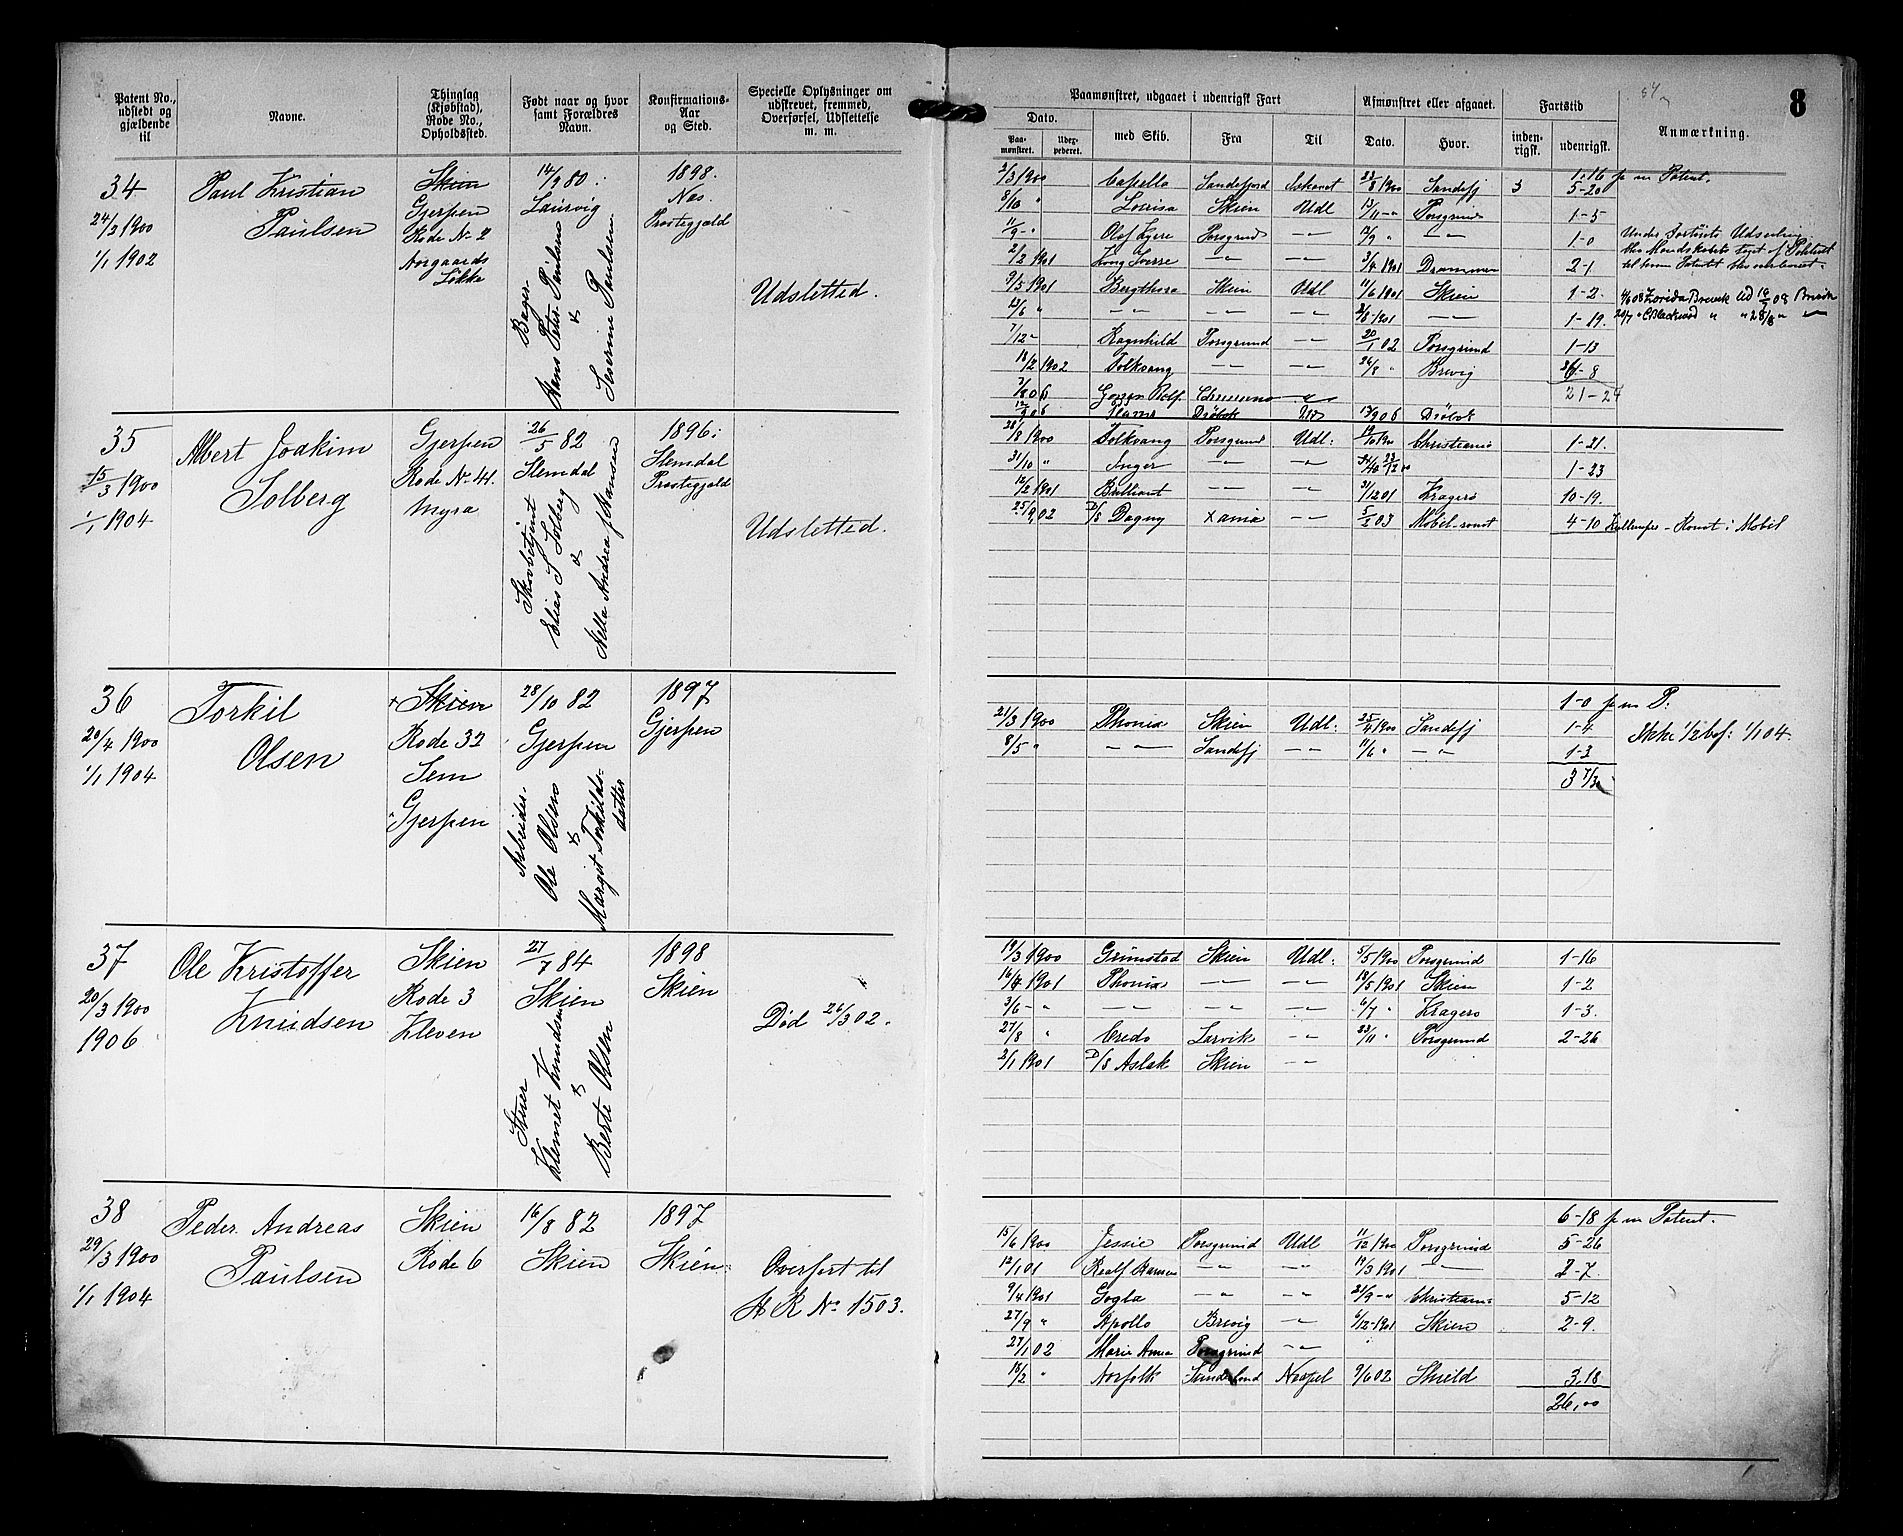 Patent No., udstedt og gjældende til
Navne.
Thinglag (Kjøbstad), Rode No., Opholdssted.
Født naar og hvor samt Forældres Navn.
Konfirmations-Aar og Sted.
Specielle Oplysninger om udskrevet, fremmed, Overførsel, Udslettelse m. m.
Paamønstret, udgaaet i udenrigsk Fart
Dato.
Paamønstret.
med Skib.
Fra
Til
Afmønstret eller afgaaet.
Dato.
Hvor.
Fartstid
indenrigsk.
udenrigsk.
Anmærkning.
8
34
24/3 1900
1/1 1902
Paul Kristian
Paulsen
Skien
Gjerpen
Rode No 2
Aorgaards
Løkke
14/9 80.
Laurvig
Bager.
Hans Peter Paulsen
&
Severine Paulsen
1898.
Nes
Prestegjeld
Udsletted.
2/3 1900 Capella Sandefjord Ishavet 23/8 1900 Sandefj 3 5-20
1.16 f m Patent.
8/10 " Lovisa Skien Udl 13/11 -"- Porsgrund 1-5
11/9 -"- Olaf Kyrre Porsgrund -"- 12/9 " -"- 1-0
2/2 1901 Kong Sverre -"- -"- 3/4 1901 Drammen 2-1
9/5 1901 Bergthora Skien Udl 11/6 1901 Skien 1-2.
23/6 " -"- -"- -"- 2/8 1901 -"- 1-19.
7/12 - Ragnhild Porsgrund -"- 20/1 02 Porsgrund 1-13
18/2 1902 Folkvang -"- -"- 26/8 " Brevig 6-8
21-24
12/9 06 Drøbak Udl 13/9 06 Drøbak
35
15/3 1900
1/1 1904
Albert Joakim
Solberg
Gjerpen
Rode No 41.
Myra
26/5 82
Slemdal
Skovbetjent
Elias S Solberg
&
Nella Andrea f. Hansen
1896.
Slemdal
Prestegjeld
Udsletted.
28/8 1900 Folkvang Porsgrund Udl. 19/10 1900 Christiania 1-21.
31/10 " Inger -"- -"- 23/12 00 1-23
12/2 1901 Brilliant -"- -"- 31/12 01 Kragerø 10-19.
25/9 02 D/S Dagny Xania -"- 5/2 03 Mobel-romt 4-10
Mobil
36
20/4 1900
1/1 1904
Torkil
Olsen
Skien
Rode 32
Sem
Gjerpen
28/10 82
Gjerpen
Arbeider.
Ole Olsen
&
Margit Torkilds-
datter
1897
Gjerpen
1-0 f m P.
21/3 1900 Phønix Skien Udl. 25/4 1900 Sandefj 1-4
8/5 " -"- Sandefj -"- 11/6 " -"- 1-3
3 7/30
Ikke 1/2 bef. 1/1 04.
37
20/3 1900
1906
Ole Kristoffer
Knudsen
Skien
Rode 3
Kleven
27/7 84
Skien
Klemet Knudsen
&
Berte Olsen
1898
Skien
Død 26/3 02.
19/3 1900 Grimstad Skien Udl. 5/5 1900 Porsgrund 1-16
16/4 1901 Phønix -"- -"- 18/5 1901 Skien 1-2
3/6 - " -"- -"- -"- 6/7 " Kragerø 1-3.
27/8 " Credo Larvik -"- 23/11 " Porsgrund 2-26
2/1 1901 D/S Aslak Skien -"-
38
29/3 1900
1/1 1904
Peder Andreas
Paulsen
Skien
Rode 6
16/8 82
Skien
1897
Skien
Overført til
A R No 1503.
6-18 f m Patent.
15/6 1900 Jessie Porsgrund Udl 11/12 1900 Porsgrund 5-26
12/1 01 -"- -"- 19/3 1901 -"- 2-7.
9/4 1901 Gogla -"- -"- 21/9 -" Christiania 5-12
27/9 " Apollo Brevig -"- 6/12 1901 Skien 2-9.
27/1 02 Marie Anna Porsgrund -"-
18/2 " Norfolk Sunderland Neapel 9/6 02 Shield 3.18
26,00